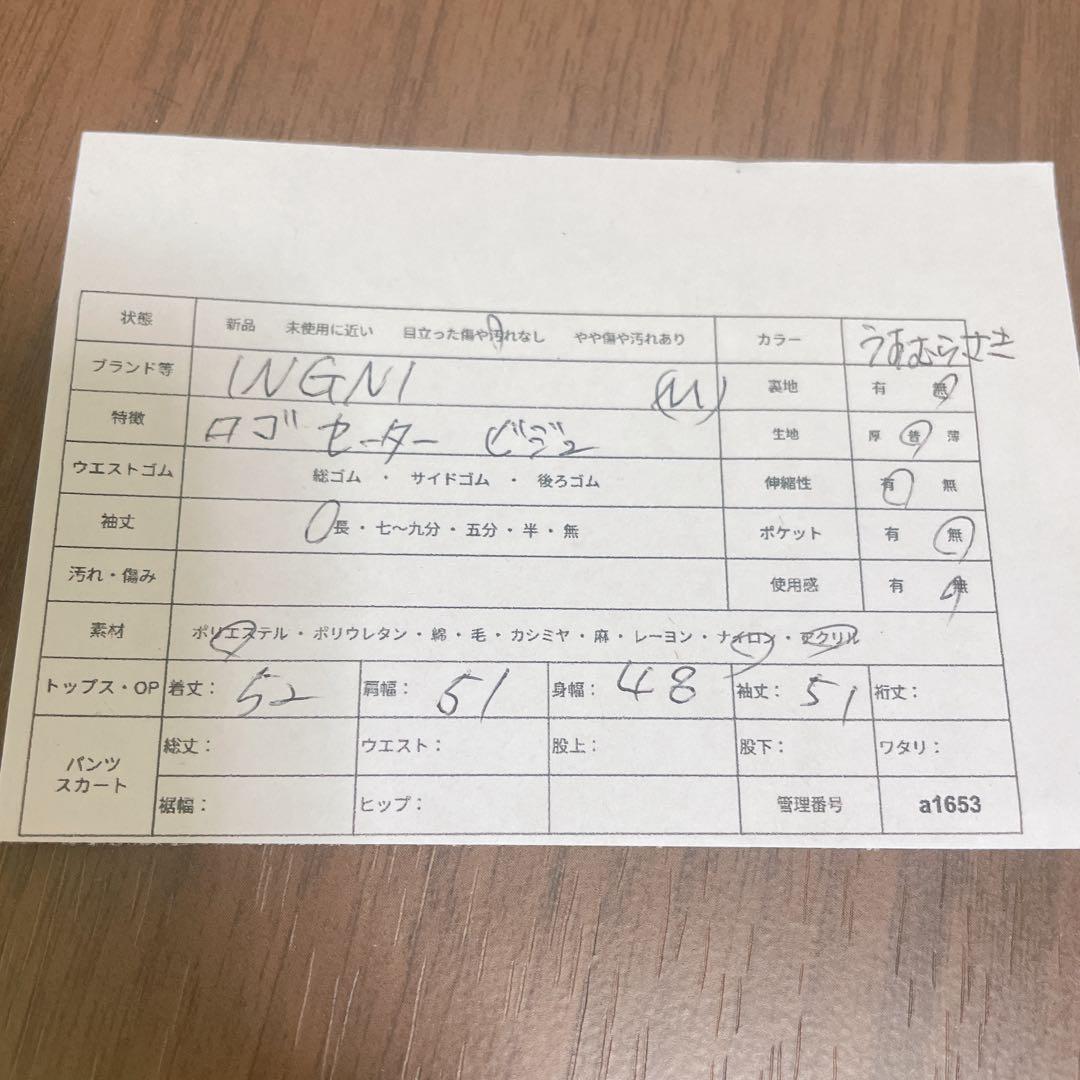 状態 新品 未使用に近い 目立った傷や汚れなし やや傷や汚れあり カラー うすむらさき
ブランド等 INGNI (M) 裏地 有 無
特徴 ロゴ セーター ビジュ 生地 厚 普 薄
ウエストゴム 総ゴム ・ サイドゴム ・ 後ろゴム 伸縮性 有 無
袖丈 長・七〜九分・五分・半・無 ポケット 有 無
汚れ・傷み 使用感 有 無
素材 ポリエステル・ポリウレタン・綿・毛・カシミヤ・麻・レーヨン・ナイロン・アクリル
トップス・OP 着丈: 52 肩幅: 51 身幅: 48 袖丈: 51 裄丈:
パンツ スカート 総丈: ウエスト: 股上: 股下: ワタリ:
裾幅: ヒップ: 管理番号 a1653